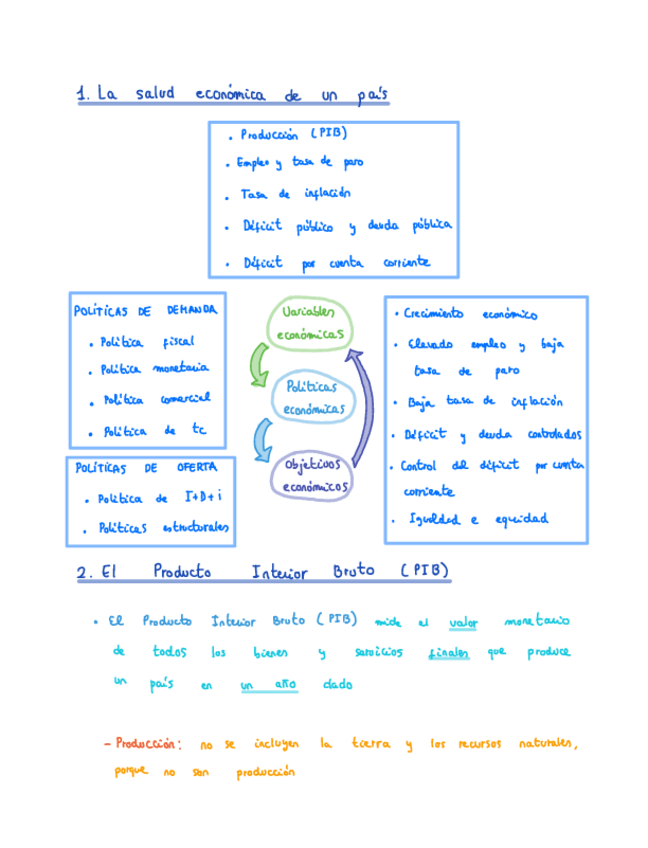 1. La salud económica de un país
• Producción (PIB)
• Empleo y tasa de paro
• Tasa de inflación
• Déficit público y deuda pública
• Déficit por cuenta corriente
POLÍTICAS DE DEMANDA
• Política fiscal
• Política monetaria
• Política comercial
• Política de tc
POLÍTICAS DE OFERTA
• Política de I+D+i
• Políticas estructurales
Variables
económicas
Políticas
económicas
Objetivos
económicos
• Crecimiento económico
• Elevado empleo y baja
tasa de paro
• Baja tasa de inflación
• Déficit y deuda controlados
• Control del déficit por cuenta
corriente
• Igualdad e equidad
2. El Producto Interior Bruto (PIB)
• El Producto Interior Bruto (PIB) mide el valor monetario
de todos los bienes y servicios finales que produce
un país en un año dado
- Producción: no se incluyen la tierra y los recursos naturales,
porque no son producción